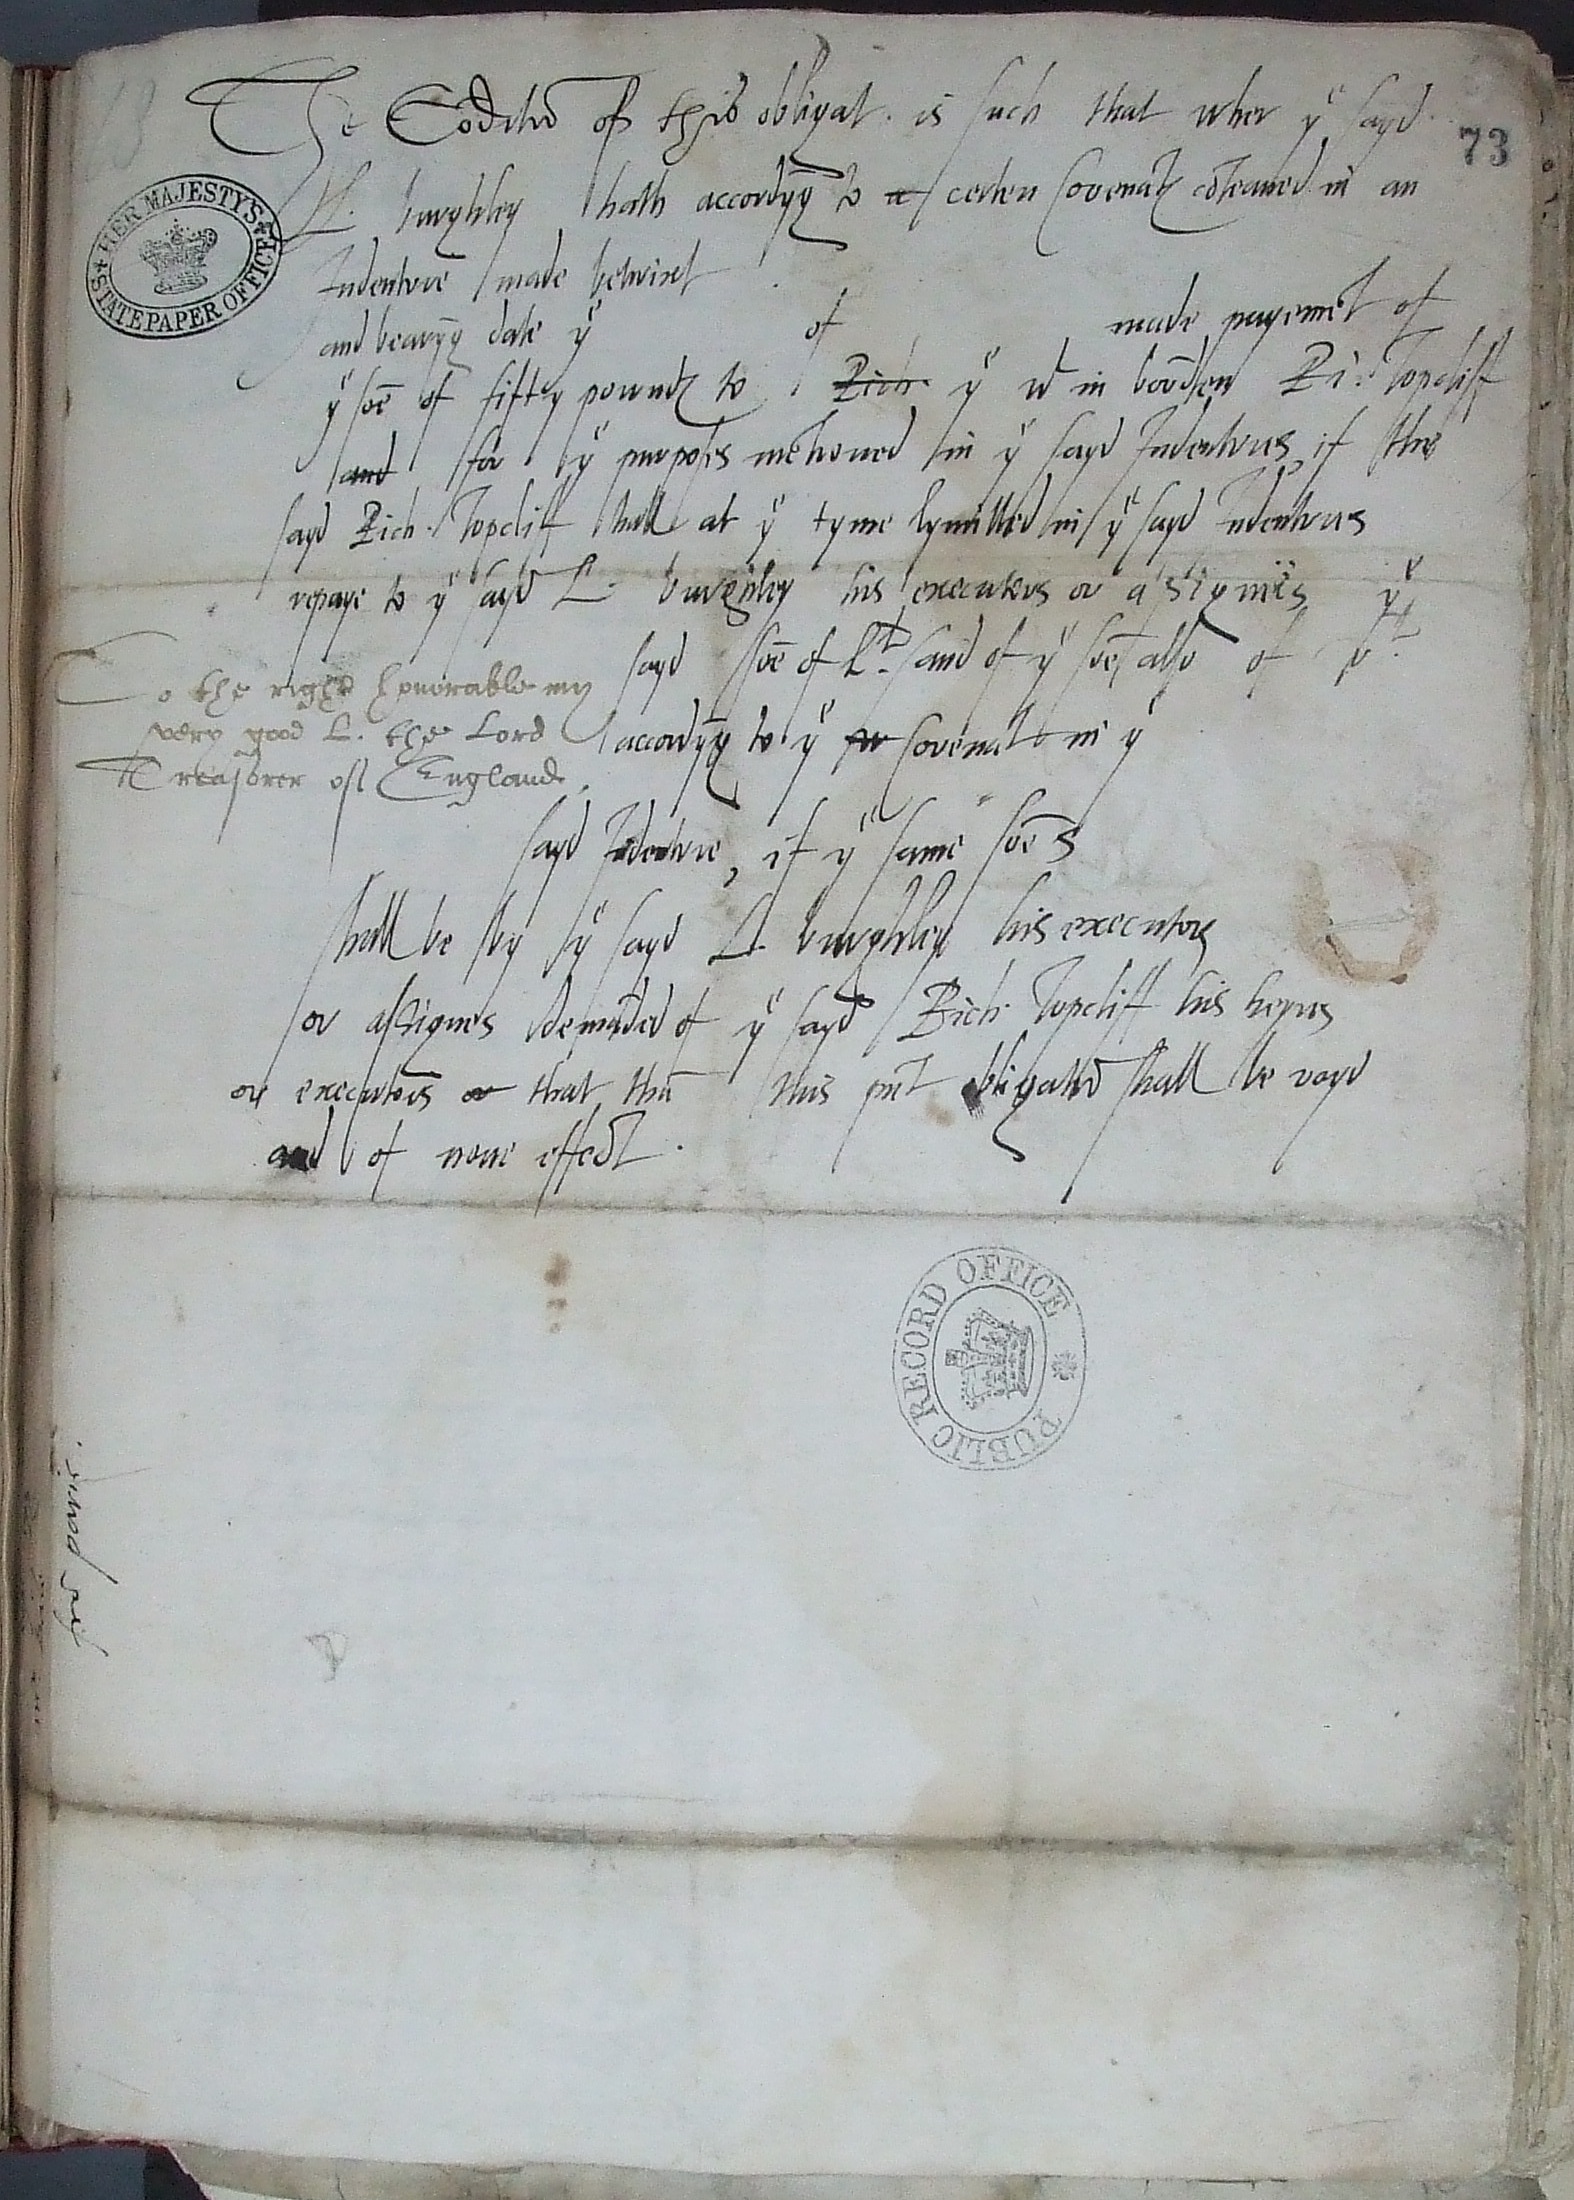 73
HER MAJESTY'S STATE PAPER OFFICE
The Codicio of this obligat. is such that wher ye sayd
L. burghley hath accordyg to a certen Covenat coteaned in an
Indenture made betwixt
and bearyg date ye of made payemet of
ye soe of fifty pownd to Rich. ye wt in bouden Ri. Topcliff
and for ye purposes metioned in ye sayd Indentures if the
sayd Rich. Topcliff shall at ye tyme lymitted in ye sayd Indentures
repaye to ye sayd L. burghley his executors or assignes ye
sayd soe of Lli and of ye soe also of
accordyg to ye Covenat in ye
sayd Indenture, if ye same soes
shall be by ye sayd L. burghley his executors
or assignes demaded of ye sayd Rich. Topcliff his heyres
or executors or that tha this pnt obligatio shall be voyd
and of none effect.
To the right honorable my
very good L. the Lord
Treasorer of England.
PUBLIC RECORD OFFICE